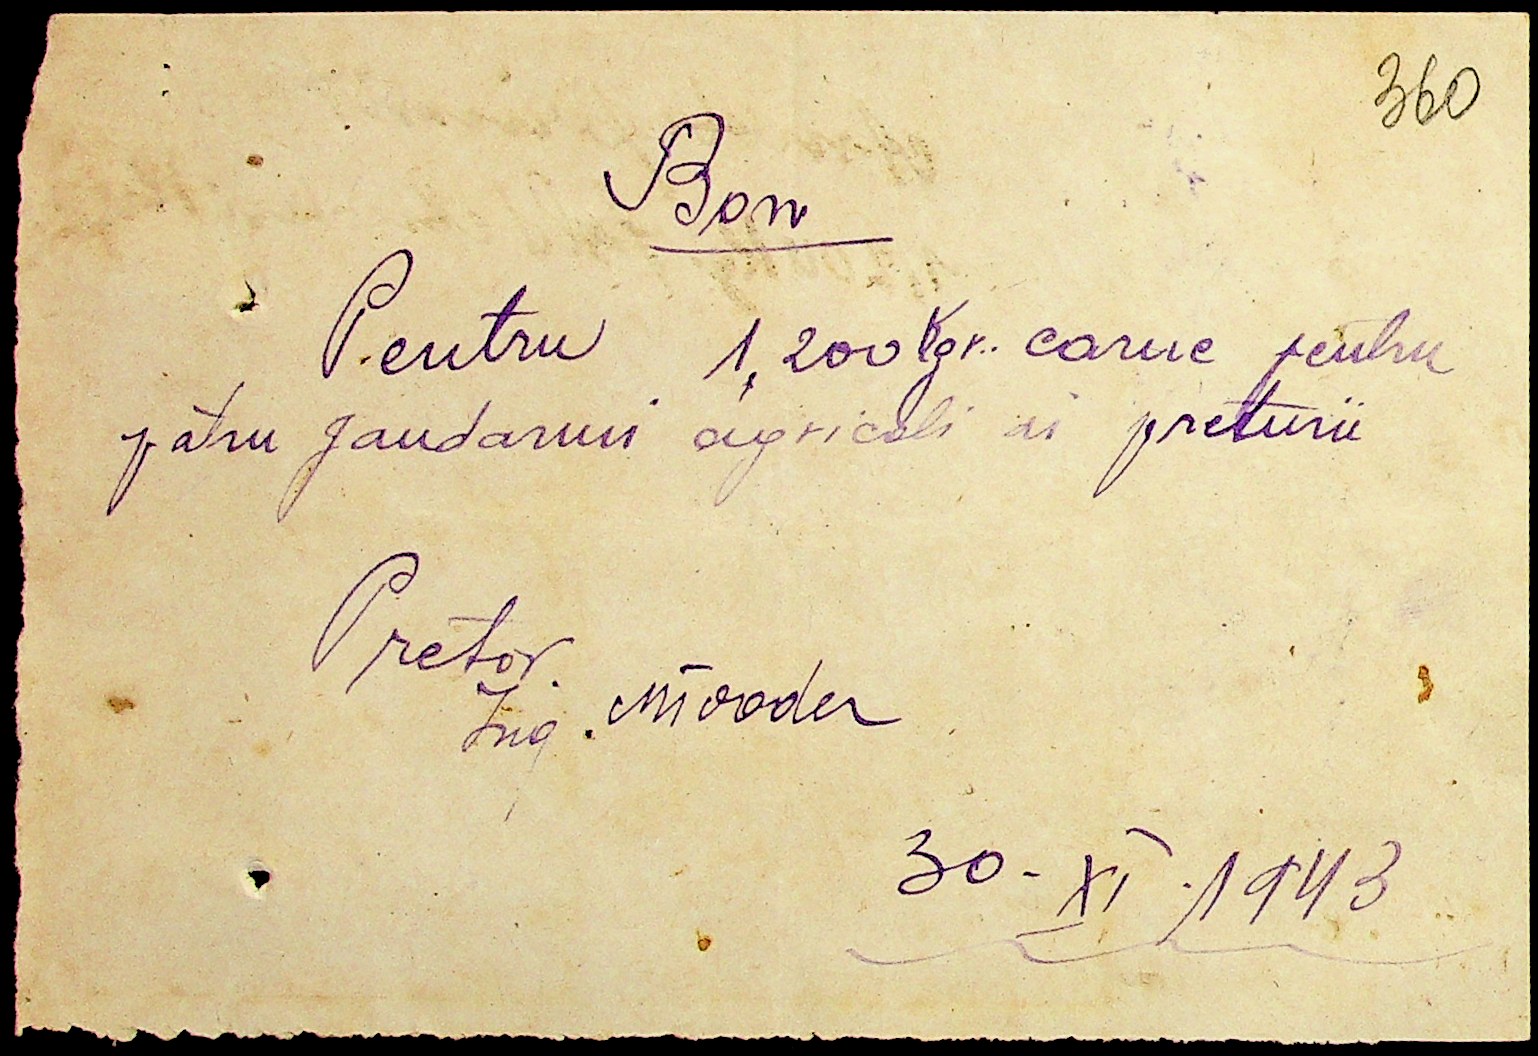 360
Bon
Pentru 1,200 Kgr. carne pentru
pătru jandarmi agricoli ai preturii
Pretor
Ing.
30-XI-1943